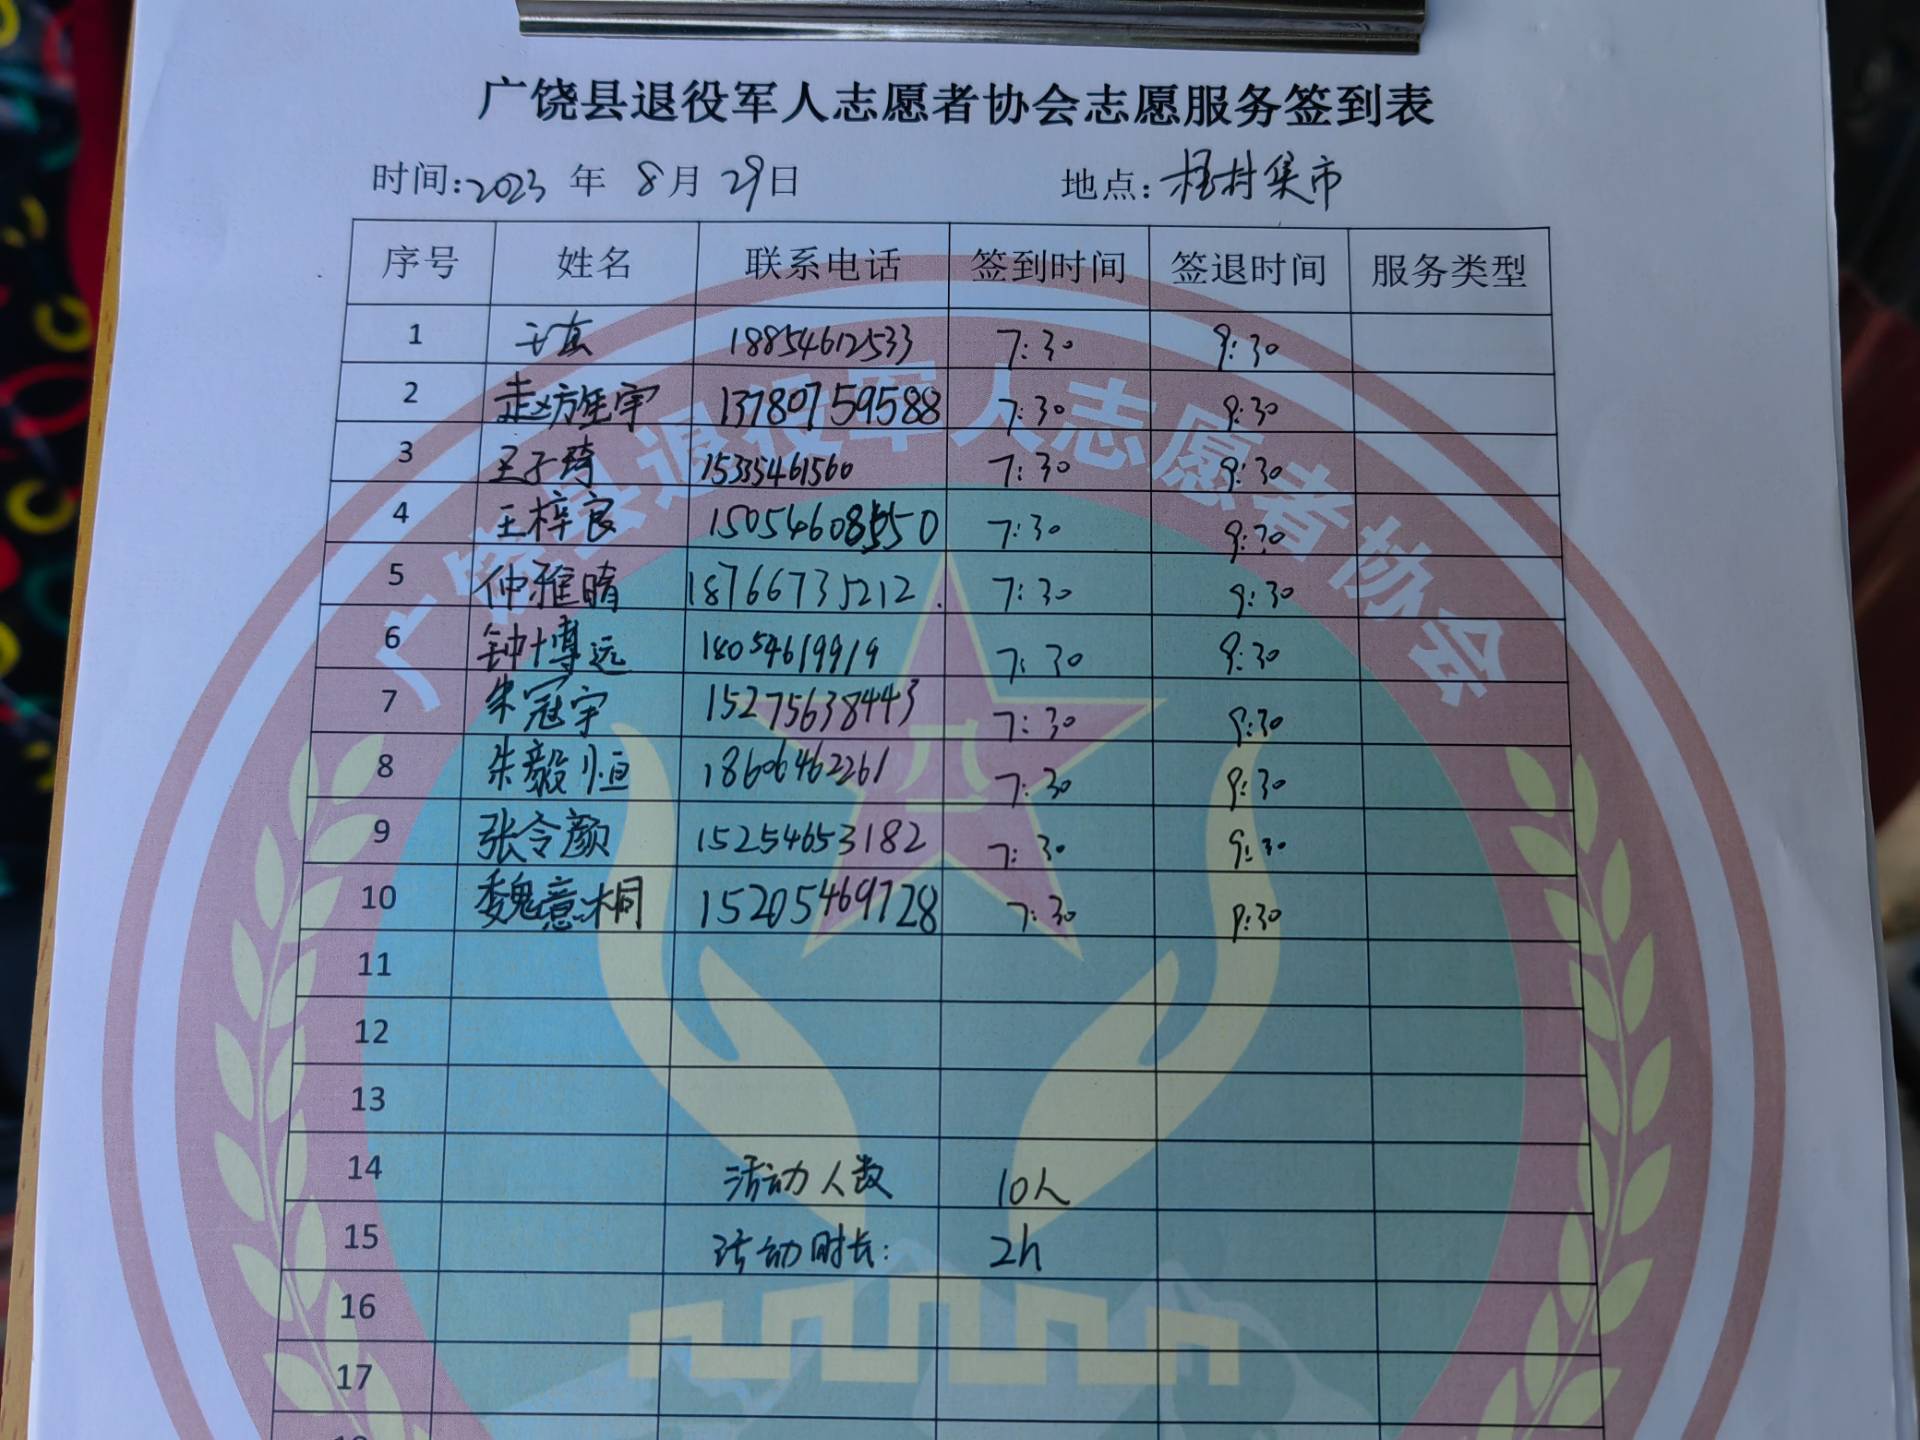 广饶县退役军人志愿者协会志愿服务签到表
时间:2023 年 8月 29日 地点:桎村集市
序号 姓名 联系电话 签到时间 签退时间 服务类型
1 18854612533 7:30 9:30
2 赵旌宇 13780759588 7:30 9:30
3 王子琦 15335461560 7:30 9:30
4 王梓良 15054608550 7:30 9:30
5 仲雅晴 18766735212 7:30 9:30
6 钟博远 18054619919 7:30 9:30
7 朱冠宇 15275638443 7:30 9:30
8 朱毅恒 18606462261 7:30 9:30
9 张令颜 15254653182 7:30 9:30
10 魏意桐 15205469728 7:30 9:30
11
12
13
14 活动人数 10人
15 活动时长: 2h
16
17
广饶县退役军人志愿者协会
八一